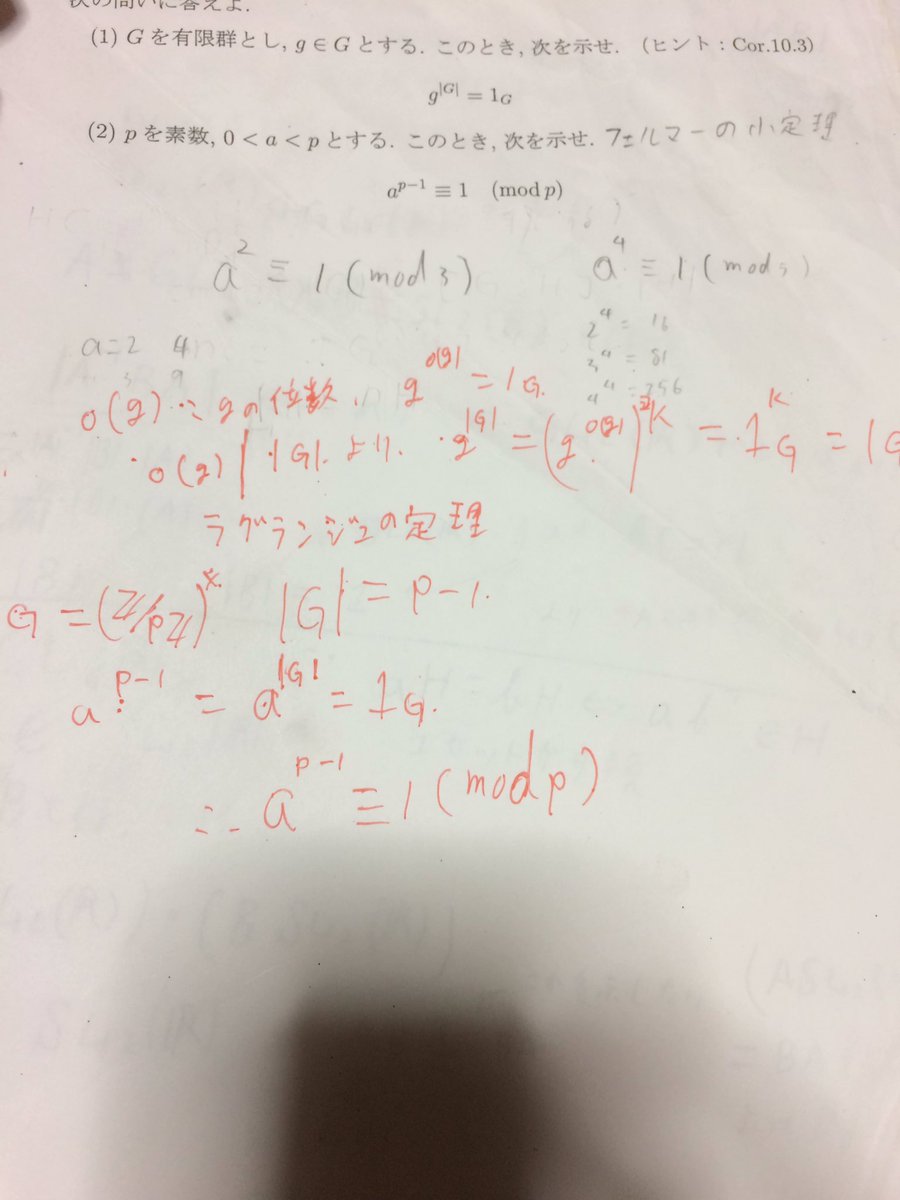 次の問いに答えよ.
(1) G を有限群とし, g ∈ G とする. このとき, 次を示せ. (ヒント : Cor.10.3)
g^{|G|} = 1_G
(2) p を素数, 0 < a < p とする. このとき, 次を示せ. フェルマーの小定理
a^{p−1} ≡ 1 (mod p)
a^2 ≡ 1 (mod 3) a^4 ≡ 1 (mod 5)
2^4 = 16
a=2 4 3^4 = 81
3 9 4^4 = 256
o(g) … gの位数, g^{o(g)} = 1_G.
・o(g) | |G| より, g^{|G|} = (g^{o(g)})^K = 1_G^K = 1_G
ラグランジュの定理
G = (Z/pZ)^× |G| = p-1.
a^{p-1} = a^{|G|} = 1_G.
∴ a^{p-1} ≡ 1 (mod p)